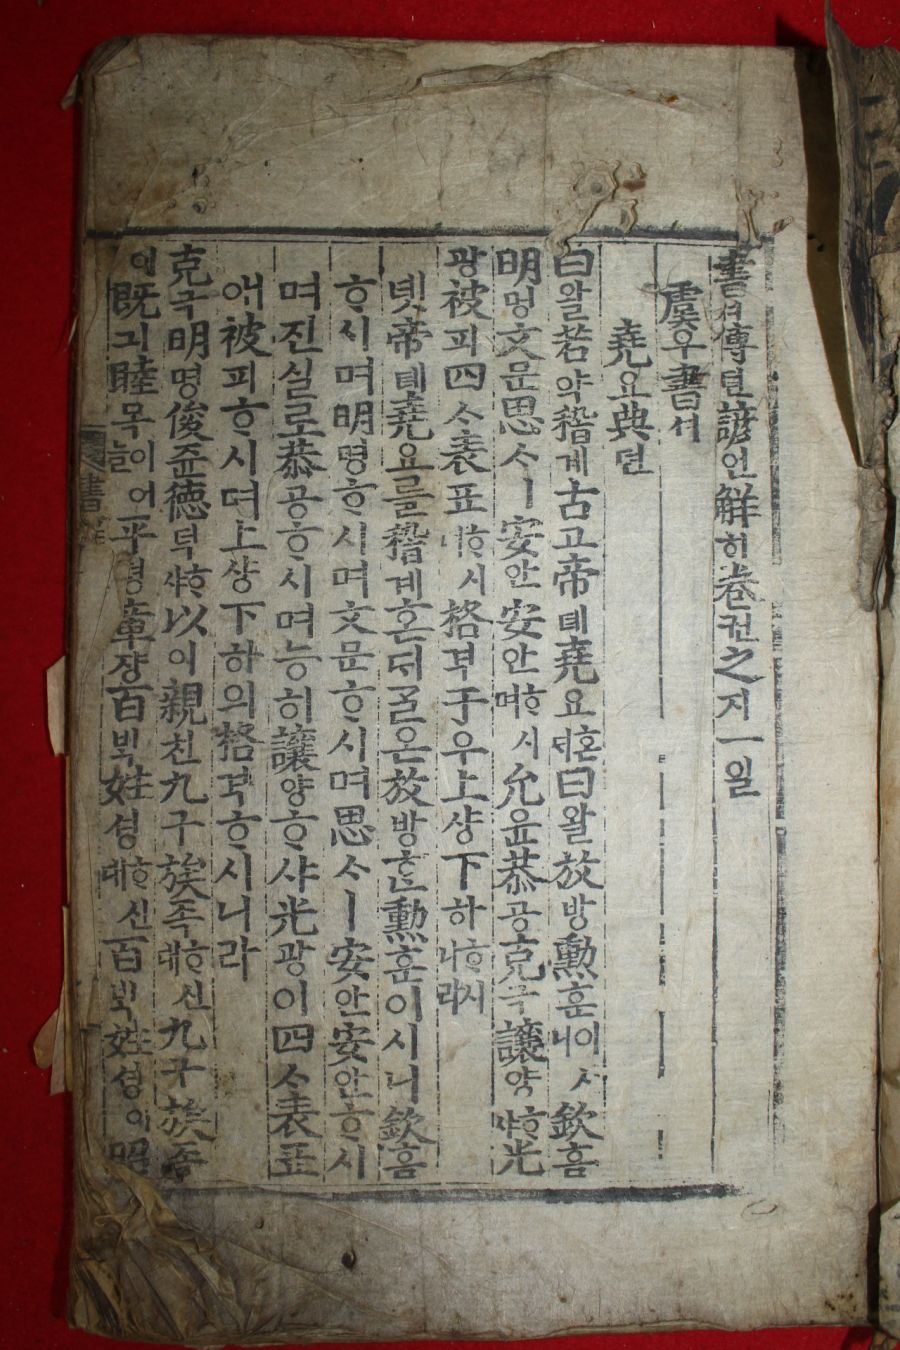 書셔傳뎐諺언解ᄒᆡ卷권之지一일
虞우書셔
堯요典뎐
曰왈若약稽계古고帝뎨堯요ᄒᆞᆫᄃᆡ曰왈放방勳훈이시니欽흠
明명文문思ᄉᆞㅣ安안安안ᄒᆞ시며允윤恭공克극讓양ᄒᆞ샤光
광被피四ᄉᆞ表표ᄒᆞ시며格격于우上샹下하ᄒᆞ시니라
녯帝뎨堯요를稽계혼ᄃᆡᄀᆞᆯ온放방ᄒᆞᆫ勳훈이시니欽흠
ᄒᆞ시며明명ᄒᆞ시며文문ᄒᆞ시며思ᄉᆞㅣ安안安안ᄒᆞ시
며진실로恭공ᄒᆞ시며능히讓양ᄒᆞ샤光광이四ᄉᆞ表표
애被피ᄒᆞ시며上샹下하의格격ᄒᆞ시니라
克극明명俊쥰德덕ᄒᆞ샤以이親친九구族족ᄒᆞ신대九구族족
이既긔睦목이어늘平평章쟝百ᄇᆡᆨ姓셩ᄒᆞ신대百ᄇᆡᆨ姓셩이昭